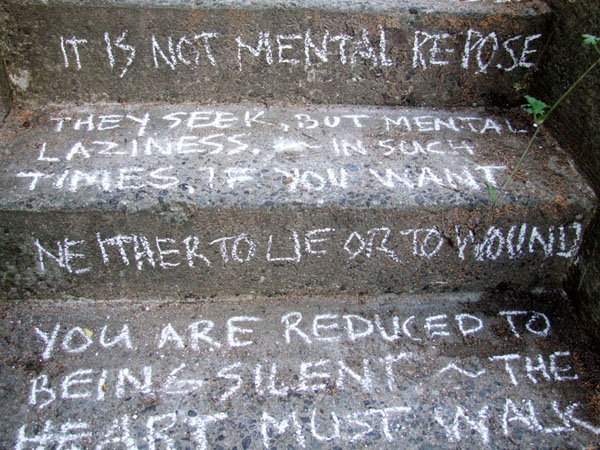 IT IS NOT MENTAL REPOSE
THEY SEEK, BUT MENTAL
LAZINESS. ~ IN SUCH
TIMES IF YOU WANT
NEITHER TO LIE OR TO WOUND
YOU ARE REDUCED TO
BEING SILENT ~ THE
HEART MUST WALK